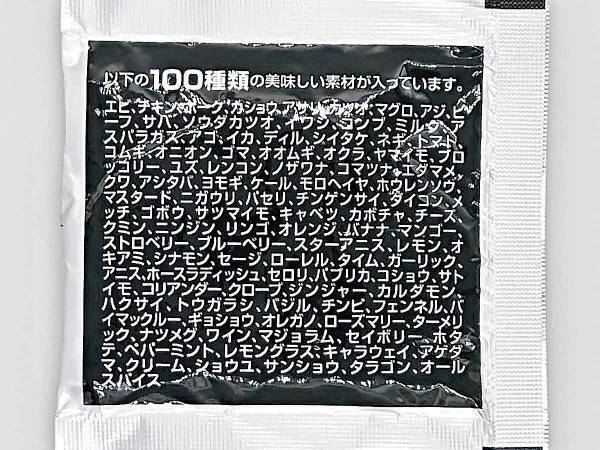 以下の100種類の美味しい素材が入っています。
エビ、チキン、ポーク、カショウ、アサリ、カツオ、マグロ、アジ、ヒ
ラ、サバ、ソウダカツオ、イワシ、コンブ、ミルク、ア
スパラガス、アゴ、イカ、ディル、シイタケ、ネギ、トマト、
コムギ、オニオン、ゴマ、オオムギ、オクラ、ヤマイモ、ブロ
ッコリー、ユズ、レンコン、ノザワナ、コマツナ、エダマメ、
クワ、アシタバ、ヨモギ、ケール、モロヘイヤ、ホウレンソウ、
マスタード、ニガウリ、パセリ、チンゲンサイ、ダイコン、メ
ッチ、ゴボウ、サツマイモ、キャベツ、カボチャ、チーズ、
クミン、ニンジン、リンゴ、オレンジ、バナナ、マンゴー、
ストロベリー、ブルーベリー、スターアニス、レモン、オ
キアミ、シナモン、セージ、ローレル、タイム、ガーリック、
アニス、ホースラディッシュ、セロリ、パプリカ、コショウ、サト
イモ、コリアンダー、クローブ、ジンジャー、カルダモン、
ハクサイ、トウガラシ、バジル、チンピ、フェンネル、バ
イマックルー、ギョショウ、オレガノ、ローズマリー、ターメリ
ック、ナツメグ、ワイン、マジョラム、セイボリー、ホタ
テ、ペパーミント、レモングラス、キャラウェイ、アゲダ
マ、クリーム、ショウユ、サンショウ、タラゴン、オール
スパイス